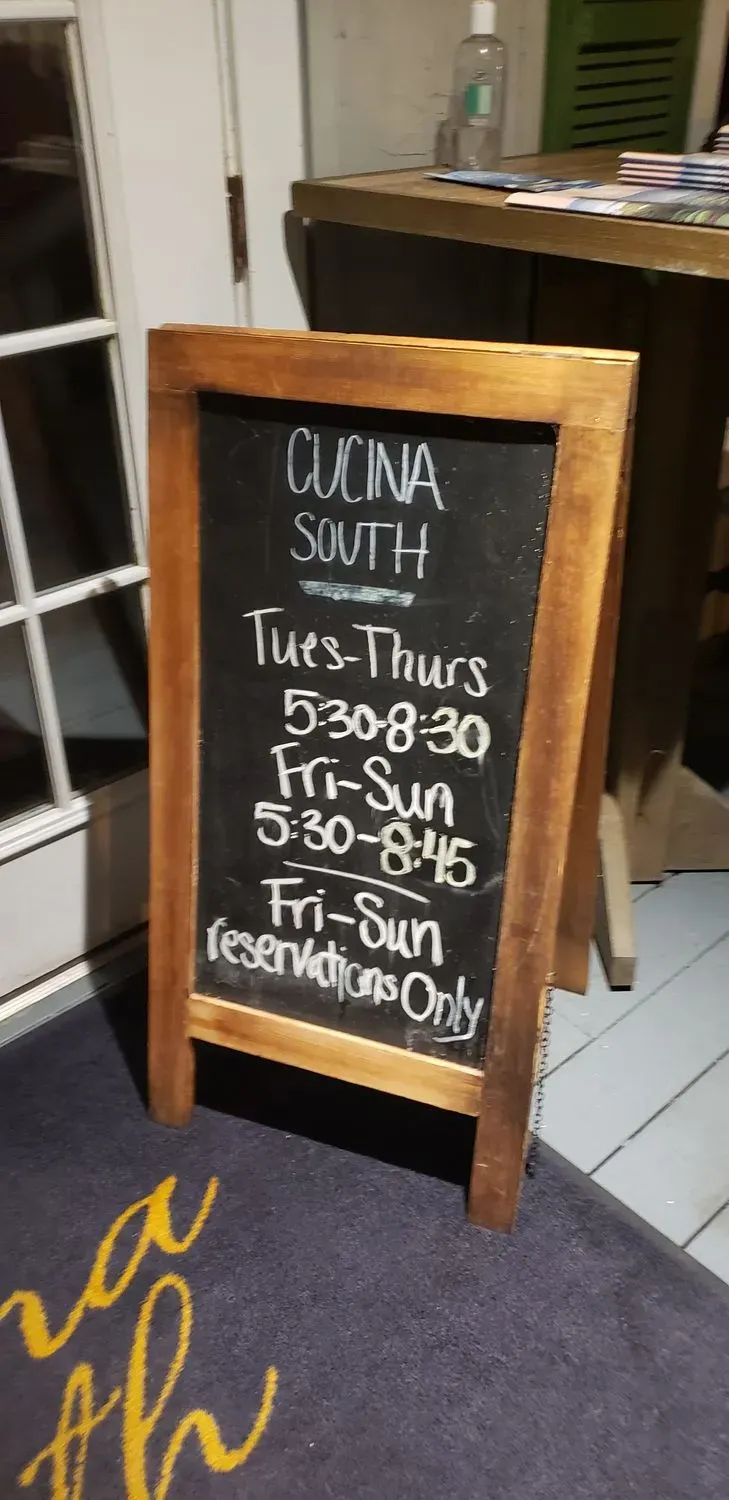 CUCINA
SOUTH
Tues-Thurs
5:30-8:30
Fri-Sun
5:30-8:45
Fri-Sun
reservations Only